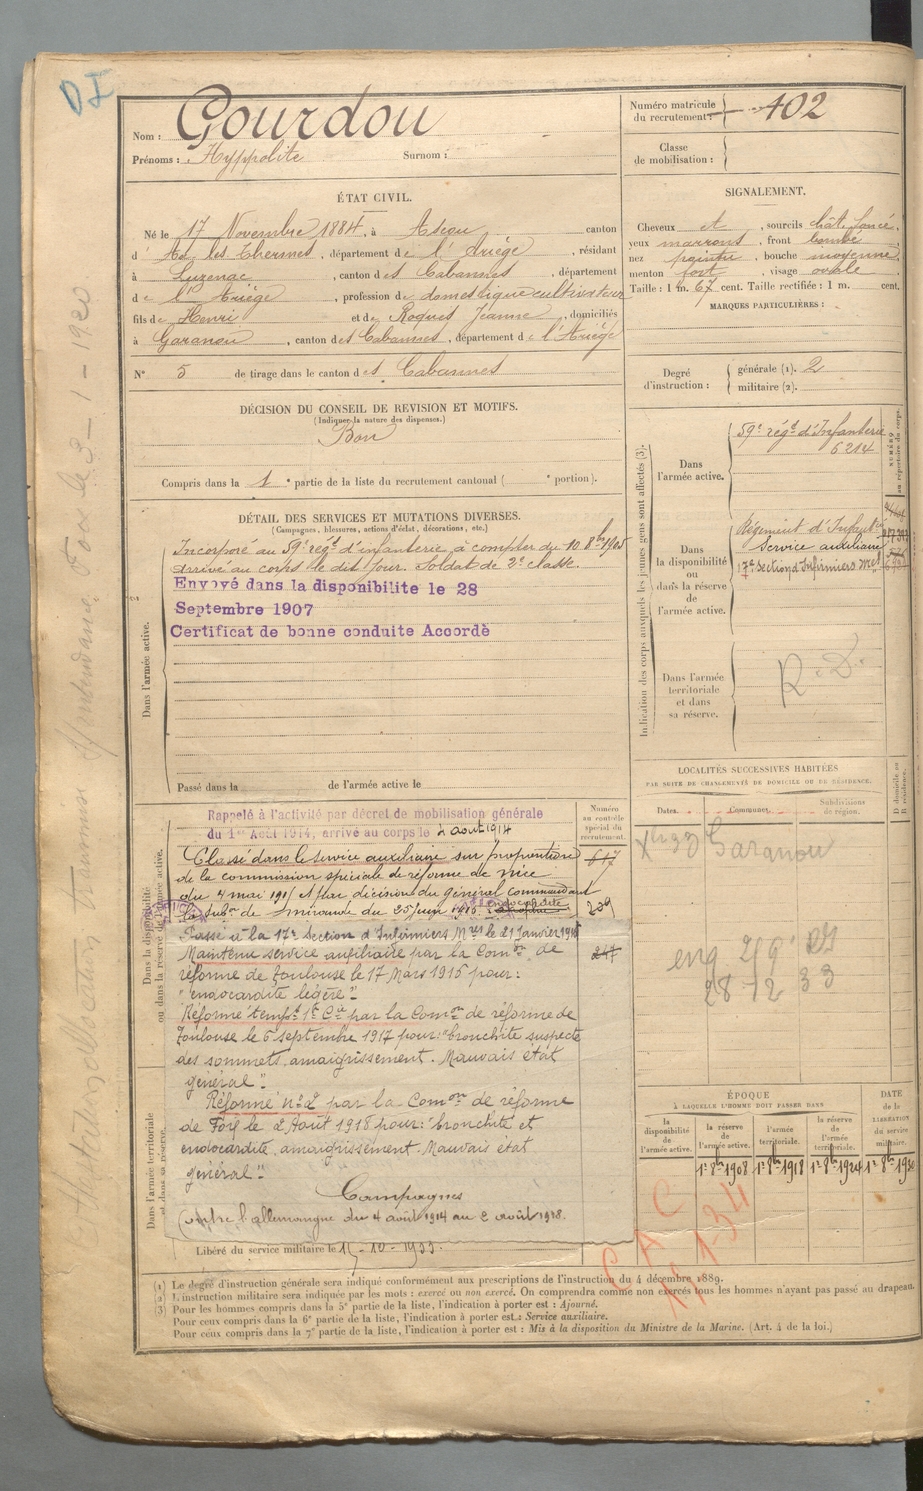 DI
Nom : Gourdou
Prénoms : Hyppolite Surnom :
Numéro matricule du recrutement : 402
Classe de mobilisation :
ÉTAT CIVIL.
Né le 17 Novembre 1884, à Ascou canton
d' Ax les Thermes, département de l'Ariège, résidant
à Luzenac, canton des Cabannes, département
de l'Ariège, profession de domestique cultivateur
fils de Henri et de Roques Jeanne, domiciliés
à Garanou, canton des Cabannes, département de l'Ariège
N° 5 de tirage dans le canton des Cabannes
SIGNALEMENT.
Cheveux et, sourcils chât. foncé,
yeux marrons, front bombé,
nez pointu, bouche moyenne,
menton fort, visage ovale
Taille : 1 m. 67 cent. Taille rectifiée : 1 m. cent.
MARQUES PARTICULIÈRES :
Degré d'instruction : générale (1). 2
militaire (2).
DÉCISION DU CONSEIL DE REVISION ET MOTIFS.
(Indiquer la nature des dispenses.)
Bon
Compris dans la 1e partie de la liste du recrutement cantonal ( e portion).
DÉTAIL DES SERVICES ET MUTATIONS DIVERSES.
(Campagnes, blessures, actions d'éclat, décorations, etc.)
Dans l'armée active.
Incorporé au 59e régt d'infanterie à compter du 10 8bre 1905
Arrivé au corps le dit jour. Soldat de 2e classe.
Envoyé dans la disponibilite le 28
Septembre 1907
Certificat de bonne conduite Accordè
Passé dans la de l'armée active le
Indication des corps auxquels les jeunes gens sont affectés (3).
Dans l'armée active.
59e régt d'Infanterie
6214
Dans la disponibilité ou dans la réserve de l'armée active.
Régiment d'Infantie
Service auxiliaire
17e Section d'Infirmiers Mres
Dans l'armée territoriale et dans sa réserve.
R. D.
NUMÉRO au répertoire du corps.
LOCALITÉS SUCCESSIVES HABITÉES
PAR SUITE DE CHANGEMENTS DE DOMICILE OU DE RÉSIDENCE.
Dates. Communes. Subdivisions de région. D domicile ou R résidence.
Xbre 33 Garanou
28 12 33
Dans la disponibilité ou dans la réserve de l'armée active.
Numéro au contrôle spécial du recrutement.
Rappelé à l'activité par décret de mobilisation générale
du 1er Août 1914, arrivé au corps le 4 août 1914
Classé dans le service auxiliaire sur proposition
de la commission spéciale de réforme de Nice
du 4 mai 1915 et par décision du général commandant
la subon de Mirande du 25 juin 1915.
617
209
247
Passé à la 17e Section d'Infirmiers Mres le 21 Janvier 1916
Maintenu service auxiliaire par la Comon de
réforme de Toulouse le 17 Mars 1916 pour :
"endocardite légère".
Réformé tempre 1e Cie par la Comon de réforme de
Toulouse le 6 septembre 1917 pour : "bronchite suspecte
des sommets, amaigrissement. Mauvais état
général".
Réformé n° 2 par la Comon de réforme
de Foix le 2 Août 1918 pour : "bronchite et
endocardite, amaigrissement. Mauvais état
général".
Campagnes
Contre l'allemagne du 4 août 1914 au 2 août 1918.
Dans l'armée territoriale et dans sa réserve.
Libéré du service militaire le 15-10-1933.
ÉPOQUE
À LAQUELLE L'HOMME DOIT PASSER DANS
la disponibilité de l'armée active.
la réserve de l'armée active.
l'armée territoriale.
la réserve de l'armée territoriale.
DATE de la LIBÉRATION du service militaire.
1er 8bre 1908 1er 8bre 1918 1er 8bre 1924 1er 8bre 1930
(1) Le degré d'instruction générale sera indiqué conformément aux prescriptions de l'instruction du 4 décembre 1889.
(2) L'instruction militaire sera indiquée par les mots : exercé ou non exercé. On comprendra comme non exercés tous les hommes n'ayant pas passé au drapeau.
(3) Pour les hommes compris dans la 5e partie de la liste, l'indication à porter est : Ajourné.
Pour ceux compris dans la 6e partie de la liste, l'indication à porter est : Service auxiliaire.
Pour ceux compris dans la 7e partie de la liste, l'indication à porter est : Mis à la disposition du Ministre de la Marine. (Art. 4 de la loi.)